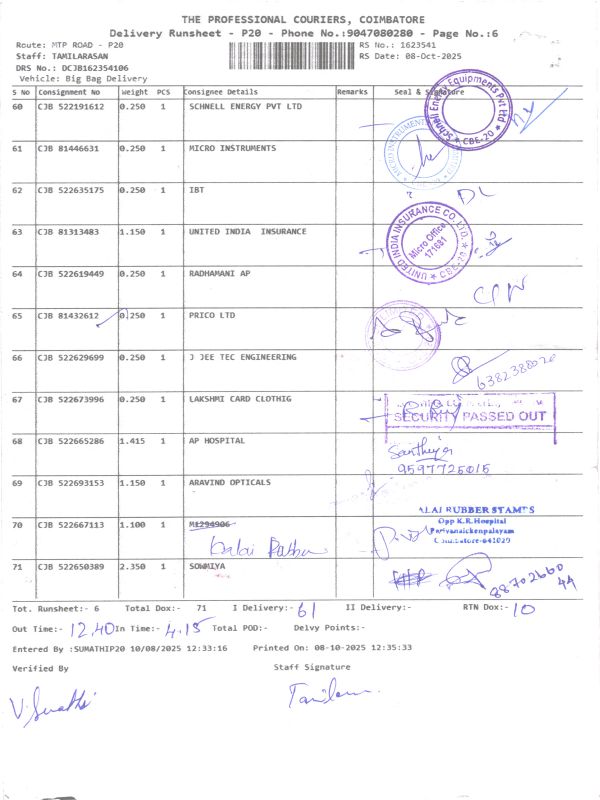 THE PROFESSIONAL COURIERS, COIMBATORE
Delivery Runsheet - P20 - Phone No.:9047080280 - Page No.:6
Route: MTP ROAD - P20 RS No.: 1623541
Staff: TAMILARASAN RS Date: 08-Oct-2025
DRS No.: DCJB162354106
Vehicle: Big Bag Delivery
S No Consignment No Weight PCS Consignee Details Remarks Seal & Signature
60 CJB 522191612 0.250 1 SCHNELL ENERGY PVT LTD
Schnell Energy Equipments Pvt Ltd CBE-20
61 CJB 81446631 0.250 1 MICRO INSTRUMENTS
MICRO INSTRUMENTS
62 CJB 522635175 0.250 1 IBT
63 CJB 81313483 1.150 1 UNITED INDIA INSURANCE
UNITED INDIA INSURANCE CO. LTD. CBE-20
Micro Office
171681
64 CJB 522619449 0.250 1 RADHAMANI AP
65 CJB 81432612 0.250 1 PRICO LTD
66 CJB 522629699 0.250 1 J JEE TEC ENGINEERING
6382388020
67 CJB 522673996 0.250 1 LAKSHMI CARD CLOTHIG
SECURITY PASSED OUT
68 CJB 522665286 1.415 1 AP HOSPITAL
9597725015
69 CJB 522693153 1.150 1 ARAVIND OPTICALS
70 CJB 522667113 1.100 1 M1294906
ALAI RUBBER STAMPS
Opp K.R.Hospital
Periyanaickenpalayam
Coimbatore-641020
71 CJB 522650389 2.350 1 SOWMIYA
88702660
44
Tot. Runsheet:- 6 Total Dox:- 71 I Delivery:- 61 II Delivery:- RTN Dox:- 10
Out Time:- 12.40 In Time:- 4.15 Total POD:- Delvy Points:-
Entered By :SUMATHIP20 10/08/2025 12:33:16 Printed On: 08-10-2025 12:35:33
Verified By Staff Signature
V. Sumathi